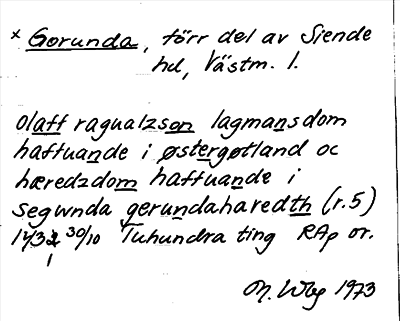 × Gorunda, förr del av Siende
hd, Västm. l.
olaff ragualzson lagmansdom
haffuande i østergøtland oc
hæredzdom haffuande i
segwnda gerundaharedth (r.5)
30/10 Tuhundra ting RAp or.
1973